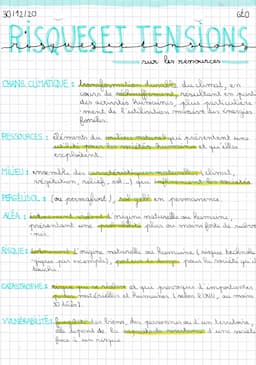 30/12/20 GÉO
RISQUES ET TENSIONS
risques et tensions
sur les ressources
CHANG. CLIMATIQUE : transformation durable du climat, en
cours de réchauffement, résultant en partie
des activités humaines, plus particulière
ment de l'utilisation massive des énergies
fossiles.
RESSOURCES : éléments du milieu naturel qui présentent une
utilité pour les sociétés humaines et qu'elles
exploitent.
MILIEU : ensemble des caractéristiques naturelles (climat,
végétation, relief, sol...) qui influencent les sociétés
PERGÉLISOL : (ou permafrost), sol gelé en permanence.
ALÉA : d'origine naturelle ou humaine,
présentant une plus ou moins forte de
RISQUE : (d'origine naturelle ou humaine (risque technolo-
gique par exemple), pour la société qu'il
touche.
CATASTROPHE : risque qui se réalise et que provoque d'importantes
pertes matérielles et humaines (selon l'ONU, au moins
VULNÉRABILITÉ : fragilité des biens, des personnes ou d'un territoire,
elle dépend de la capacité de d'une société
face à un risque.